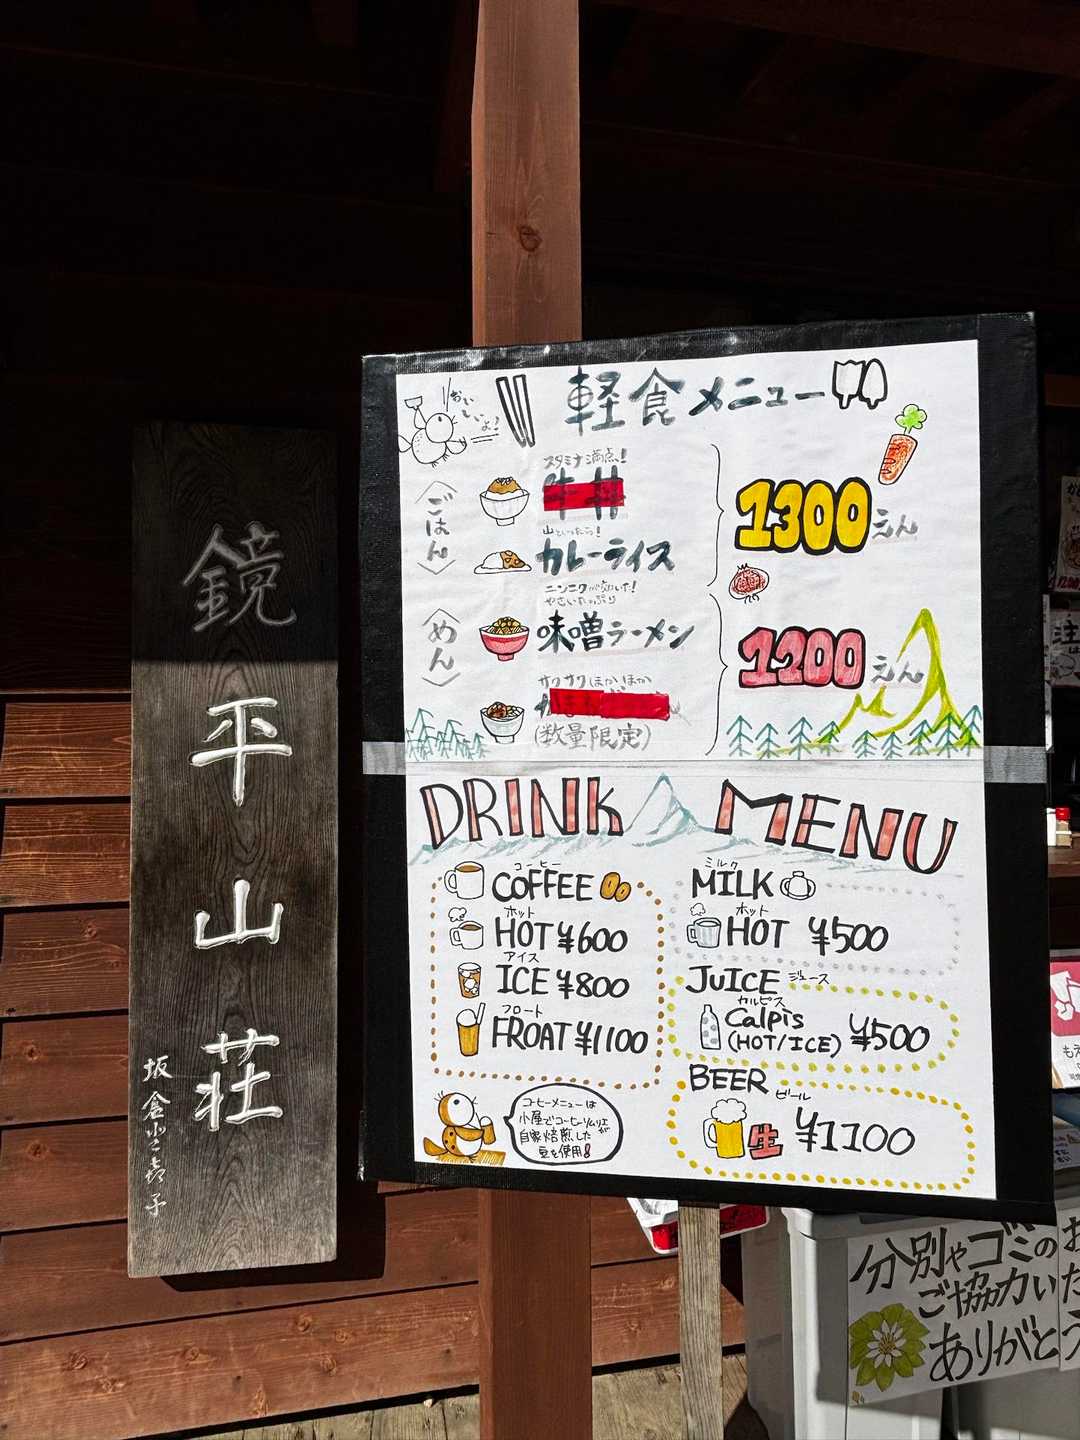 鏡平山荘
坂倉登喜子
おいしいよ!
軽食メニュー
〈ごはん〉
スタミナ満点!
牛丼
山といったら!
カレーライス
1300えん
〈めん〉
ニンニクが効いた!
やさいたっぷり
味噌ラーメン
サクサクほかほか
(数量限定)
1200えん
DRINK MENU
コーヒー
COFFEE
ホット
HOT ¥600
アイス
ICE ¥800
フロート
FROAT ¥1100
コーヒーメニューは
小屋でコーヒーソムリエが
自家焙煎した
豆を使用!
ミルク
MILK
ホット
HOT ¥500
JUICE ジュース
カルピス
Calpis
(HOT/ICE) ¥500
BEER ビール
生 ¥1100
分別やゴミの
ご協力い
ありがとう